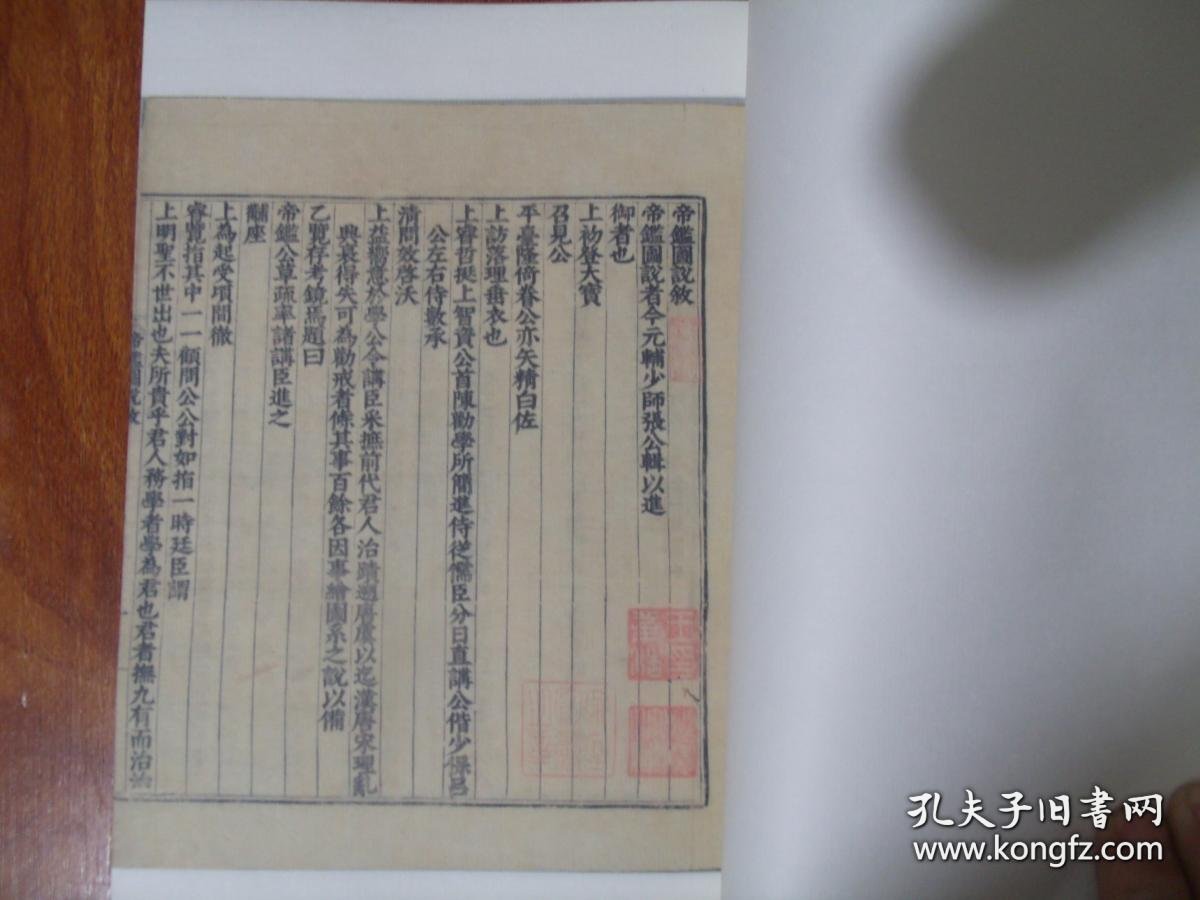 帝鑑圖說敘
帝鑑圖說者今元輔少師張公輯以進
御者也
上初登大寶
召見公
平臺隆倚眷公亦矢精白佐
上訪落理垂衣也
上睿哲挺上智資公首陳勸學所簡進侍從儒臣分日直講公偕少保呂
公左右侍數承
清問效啓沃
上益嚮意於學公令講臣采摭前代君人治蹟遡唐虞以迄漢唐宋理亂
興衰得失可為勸戒者條其事百餘各因事繪圖系之說以備
乙覽存考鏡焉題曰
帝鑑公草疏率諸講臣進之
黼座
上為起受頃間徹
睿覽指其中一一顧問公公對如指一時廷臣謂
上明聖不世出也夫所貴乎君人務學者學為君也君者撫九有而治
帝鑑圖說敘
孔夫子旧书网
www.kongfz.com